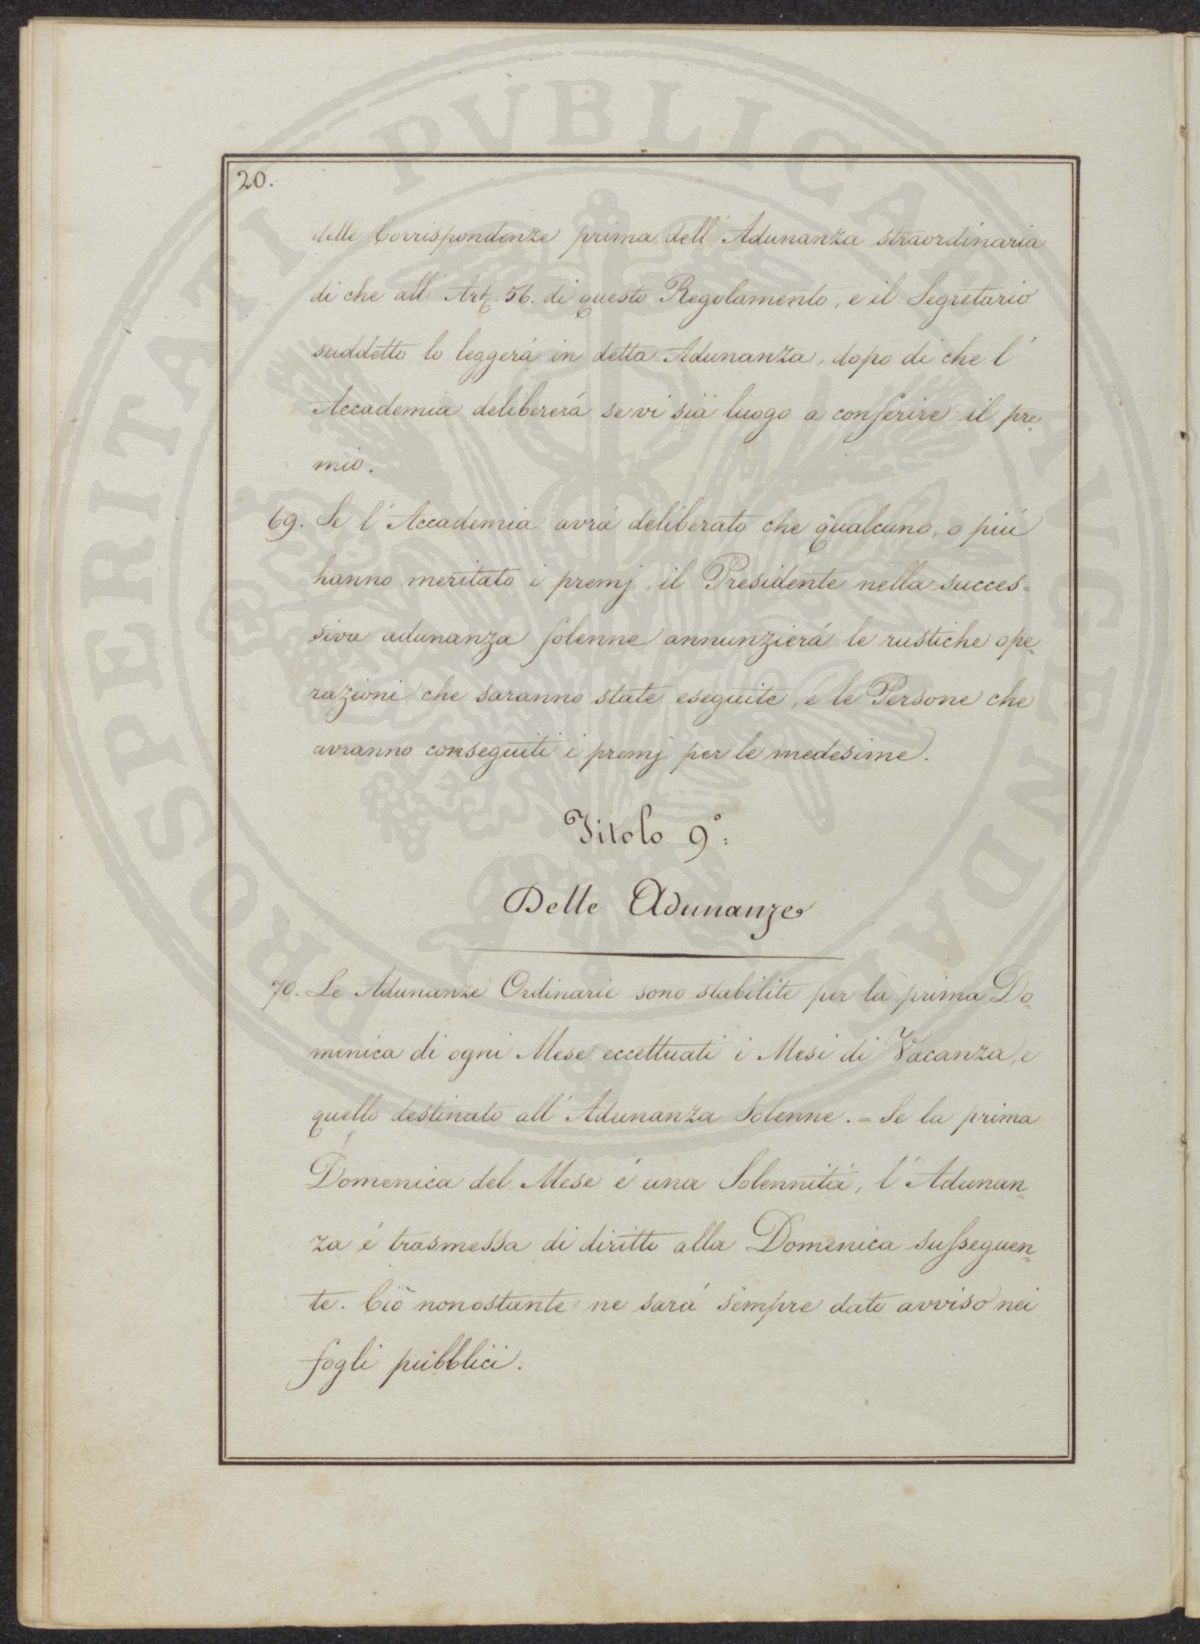 PROSPERITATI PVBLICAE AVGENDAE
20.
delle Corrispondenze prima dell' Adunanza straordinaria
di che all' Art. 56. di questo Regolamento, e il Segretario
suddetto lo leggerá in detta Adunanza, dopo di che l'
Accademia delibererá se vi sia luogo a conferire il pre-
mio.
69. Se l' Accademia avrá deliberato che qualcuno, o piú
hanno meritato i premj, il Presidente nella succes=
siva adunanza solenne annunzierá le rustiche ope-
razioni che saranno state eseguite, e le Persone che
avranno conseguiti i premj per le medesime.
Titolo 9°:
Delle Adunanze
70. Le Adunanze Ordinarie sono stabilite per la prima Do-
menica di ogni Mese eccettuati i Mesi di Vacanza, e
quello destinato all' Adunanza Solenne. = Se la prima
Domenica del Mese é una Solennitá, l' Adunan-
za é trasmessa di diritto alla Domenica susseguen-
te. Ció nonostante ne sará sempre dato avviso nei
fogli pubblici.